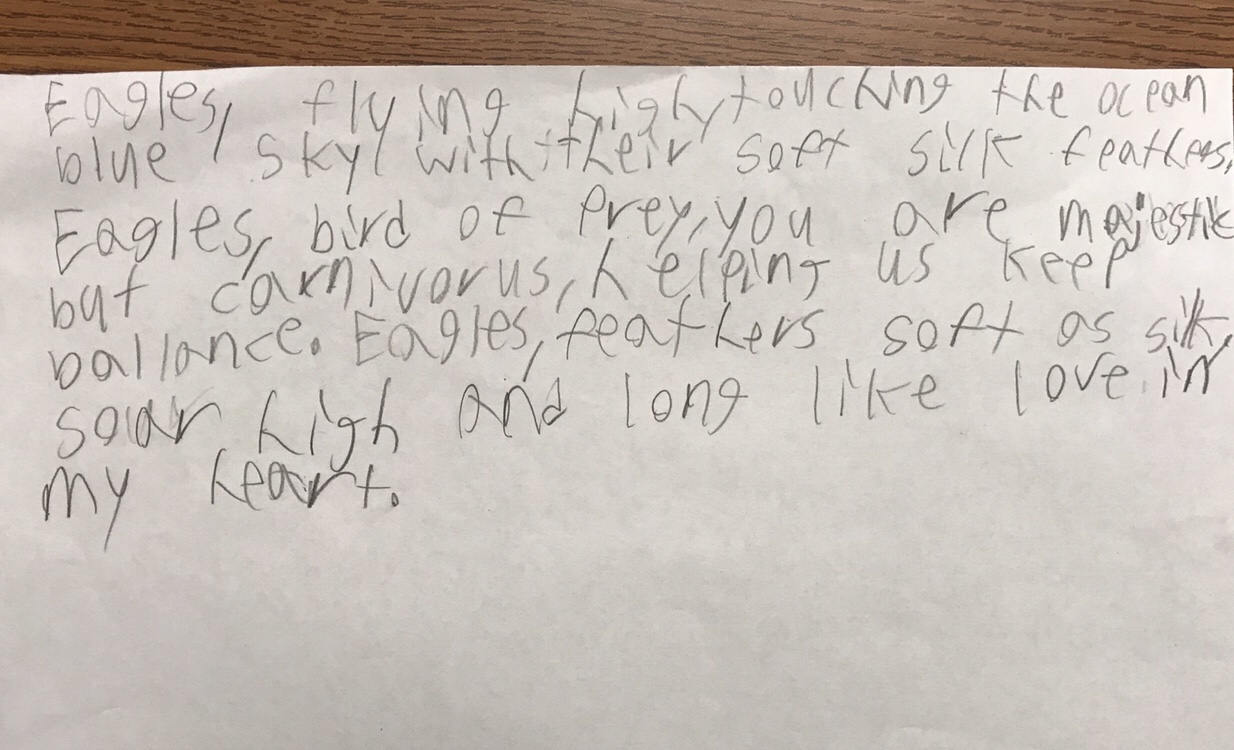 Eagles, flying high, touching the ocean
blue sky, with their soft silk feathers,
Eagles, bird of Prey, you are majestik
but carnivorus, helping us keep
ballance. Eagles, feathers soft as silk,
soar high and long like love in
my heart.